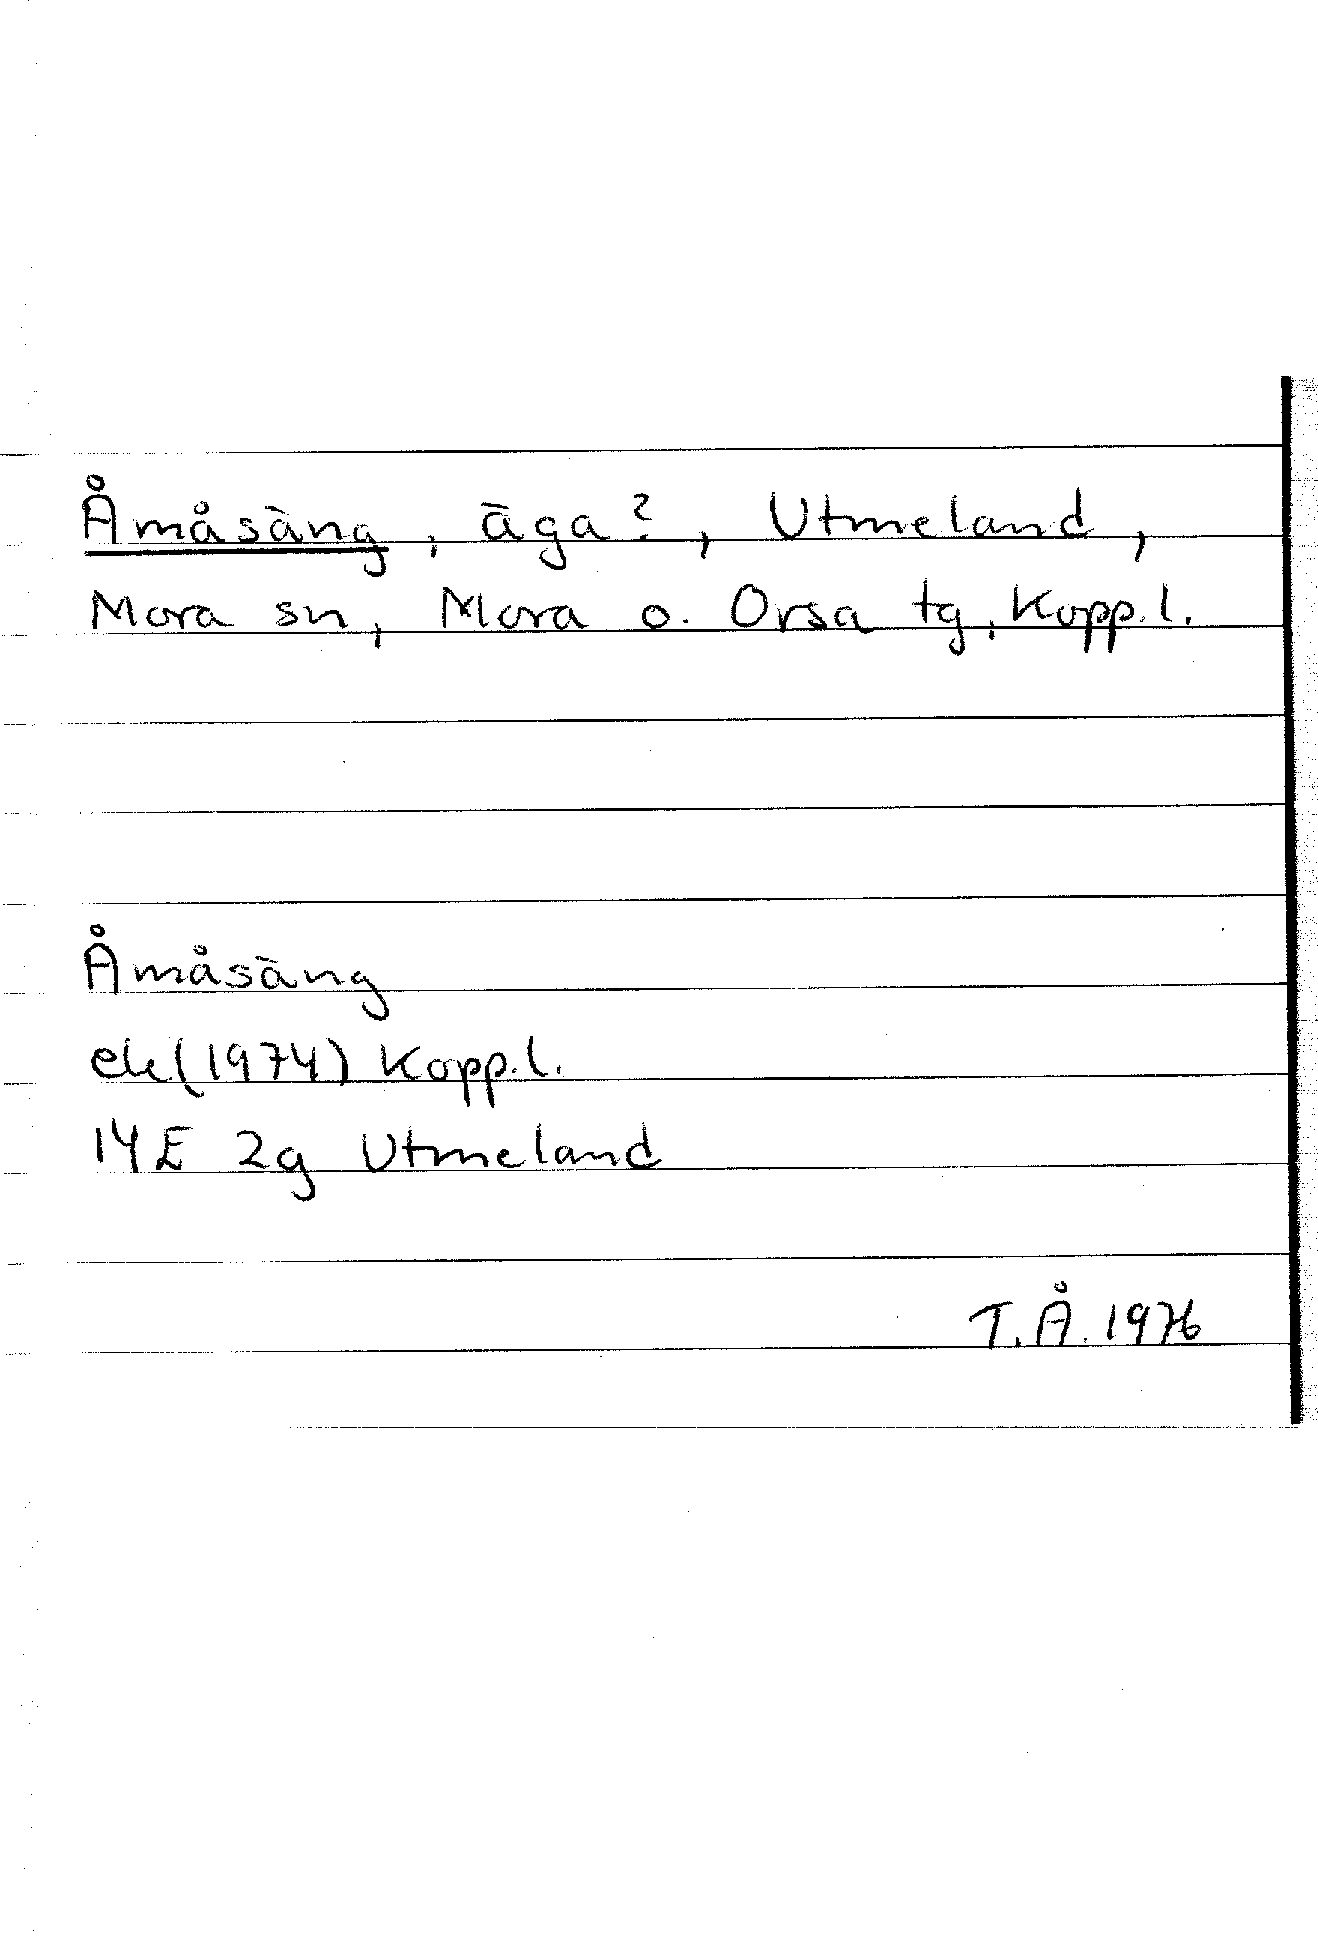 Åmåsäng, äga?, Utmeland,
Mora sn, Mora o. Orsa tg, Kopp.l.
Åmåsäng
ek(1974) Kopp.l.
14E 2g Utmeland
T.Å. 1976